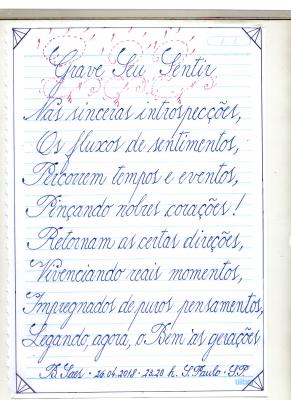 Grave Seu Sentir
Nas sinceras introspecções,
Os fluxos de sentimentos,
Percorrem tempos e eventos,
Pinçando nobres corações!
Retornam as certas direções,
Vivenciando reais momentos,
Impregnados de puros pensamentos,
Legando, agora, o Bem às gerações
B. Saes - 26.04.2018 - 23:20 h. S. Paulo - S.P.